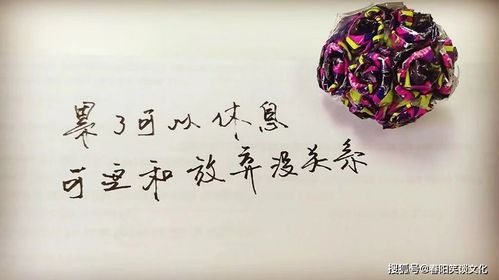 累了可以休息
可要和放弃没关系
搜狐号@春阳笑谈文化